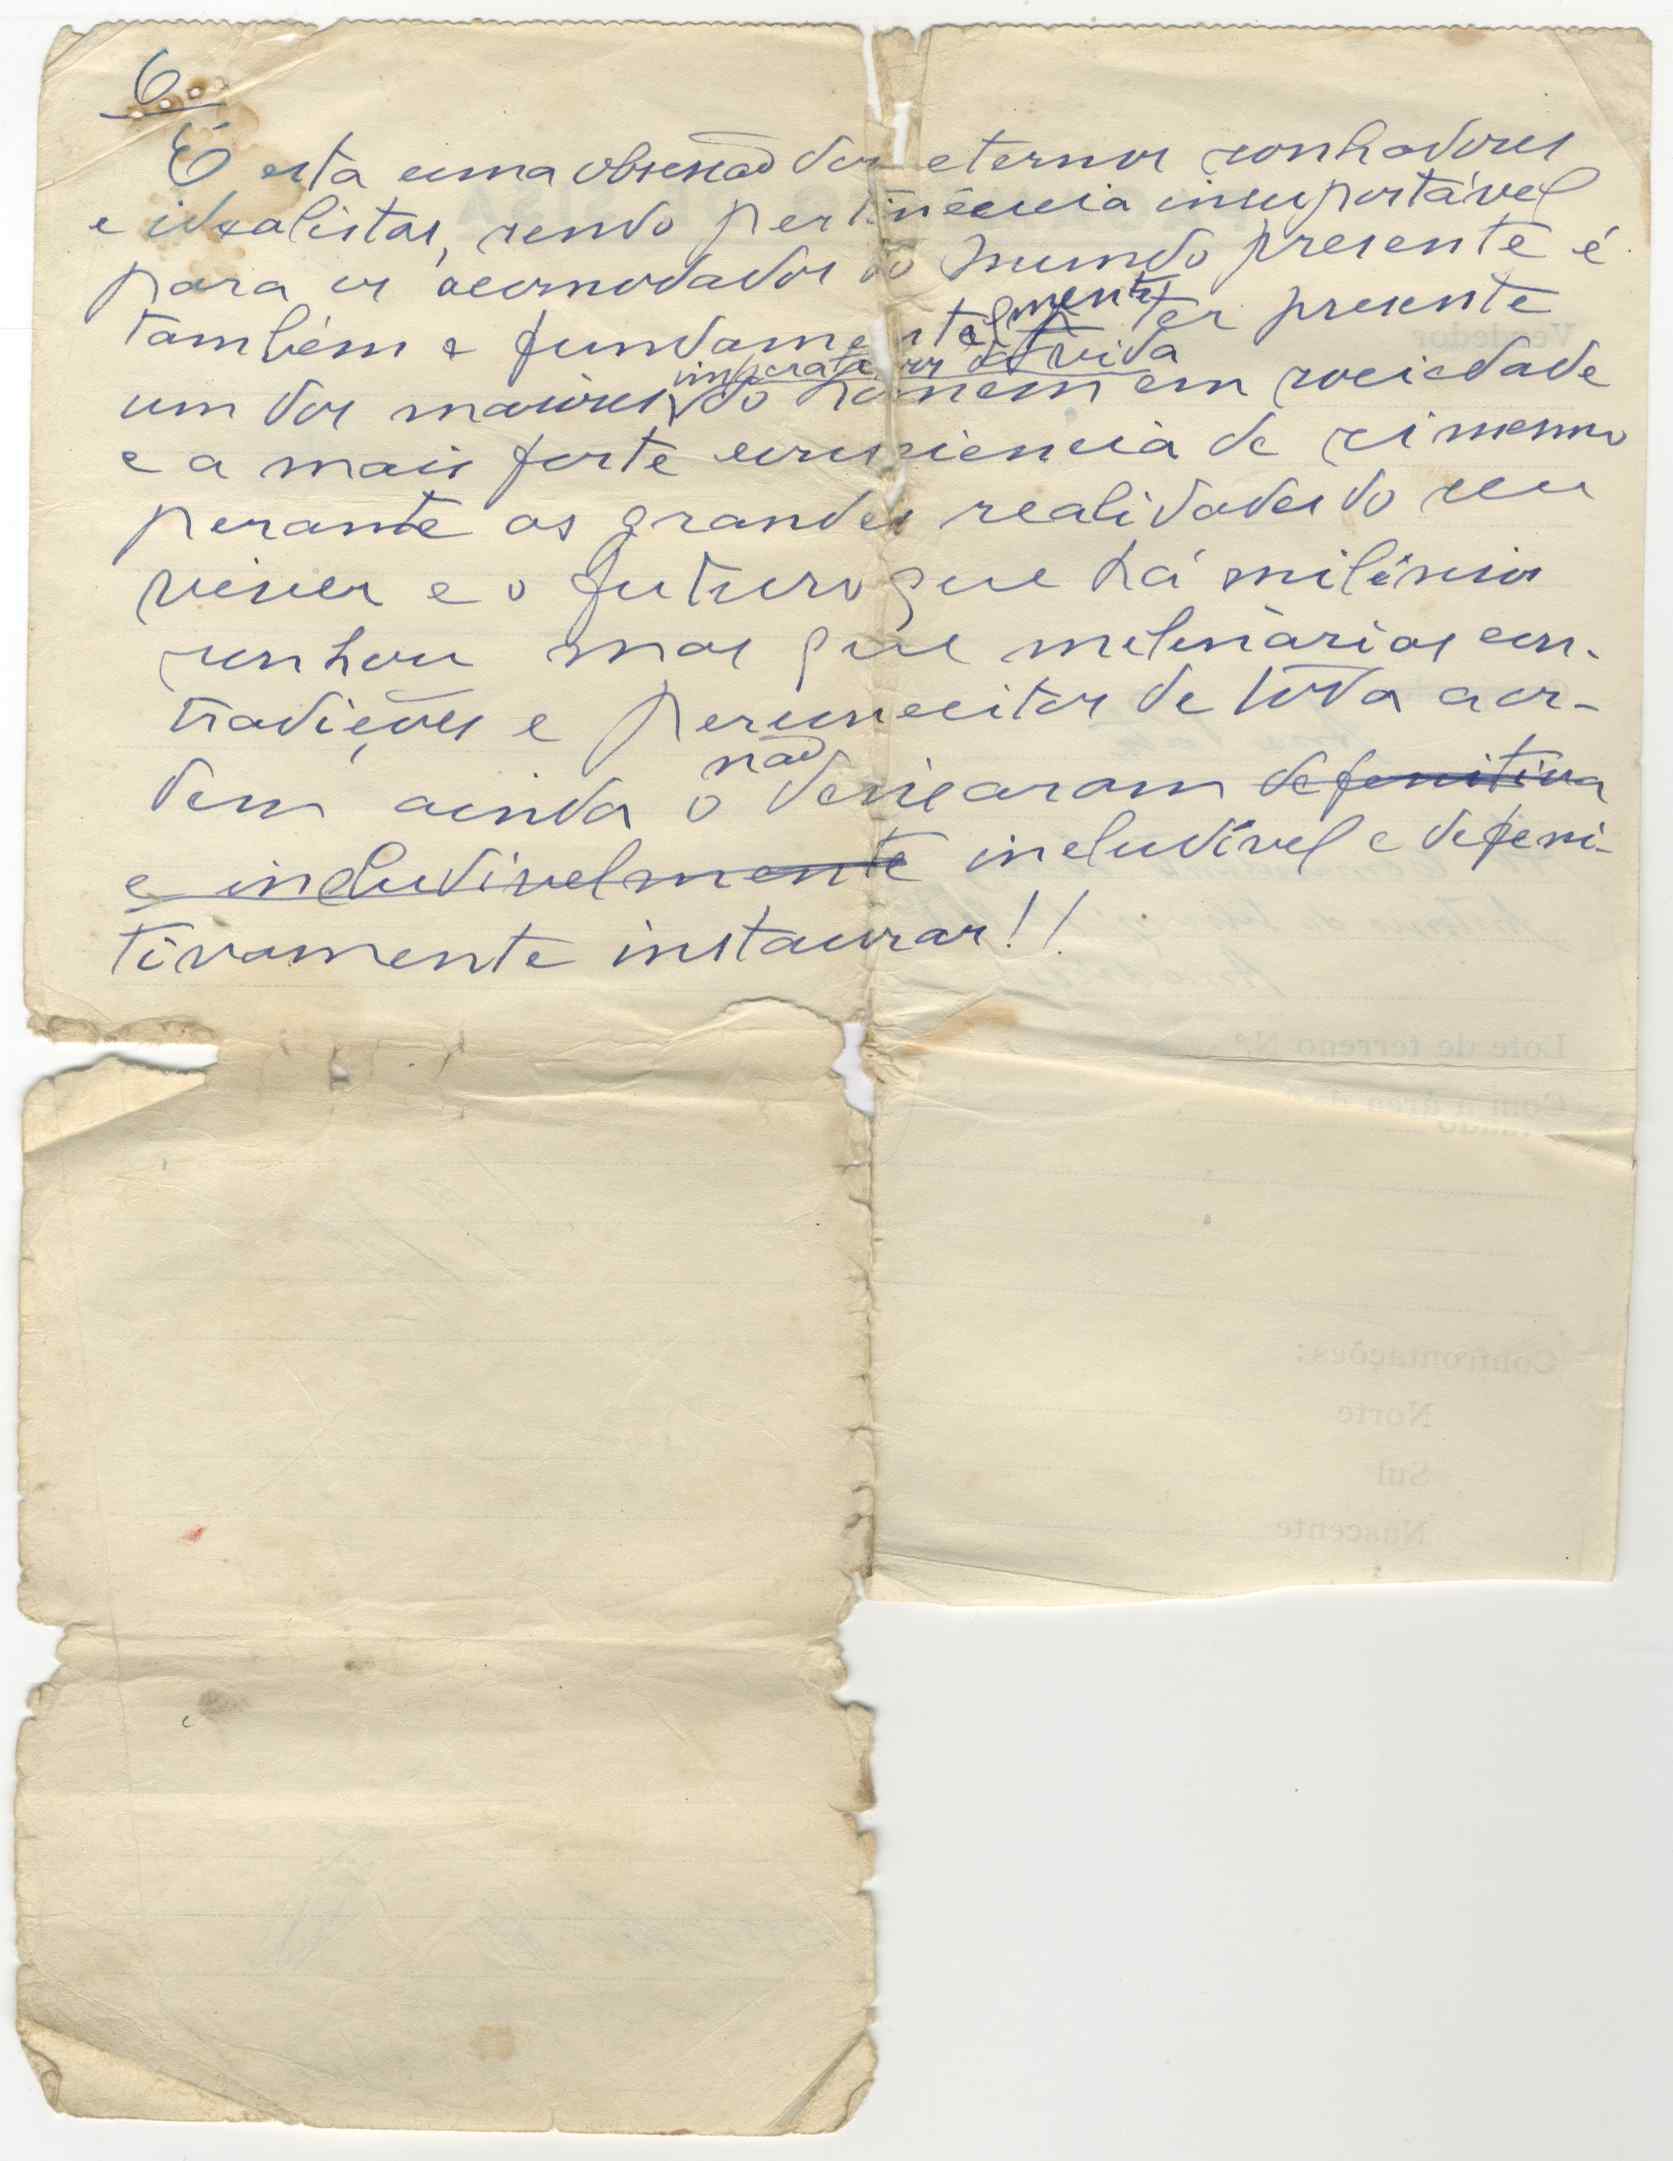 6
É esta uma obsessão dos eternos sonhadores
e idealistas, sendo pertinência insuportável
para os acomodados do mundo presente é
também e fundamentalmente ter presente
um dos maiores imperativos da vida do homem em sociedade
e a mais forte consciencia de si mesmo
perante as grandes realidades do seu
viver e o futuro que há milénios
sonhou mas que milenàrias con-
tradições e perconceitos de tôda a or-
dem ainda o não deixaram defenitiva
e ineludivelmente ineludível e defeni-
tivamente instaurar!!
SISA
Vendedor
Lote de terreno N.º
Com a área de
Confrontações:
Norte
Sul
Nascente